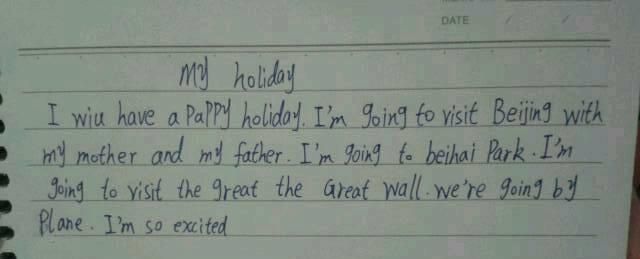 DATE
My holiday
I wiu have a PaPPY holiday. I'm going to visit Beijing with
my mother and my father. I'm going to beihai Park. I'm
going to visit the great the Great wall. we're going by
Plane. I'm so excited